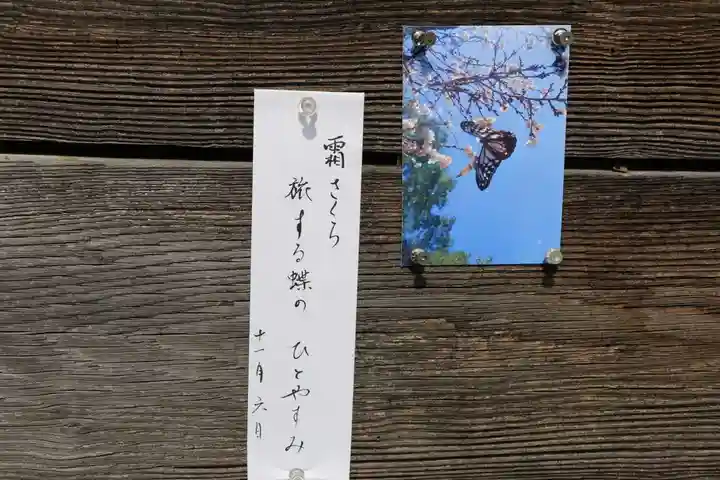 霜さくら
旅する蝶の ひとやすみ
十一月 六日